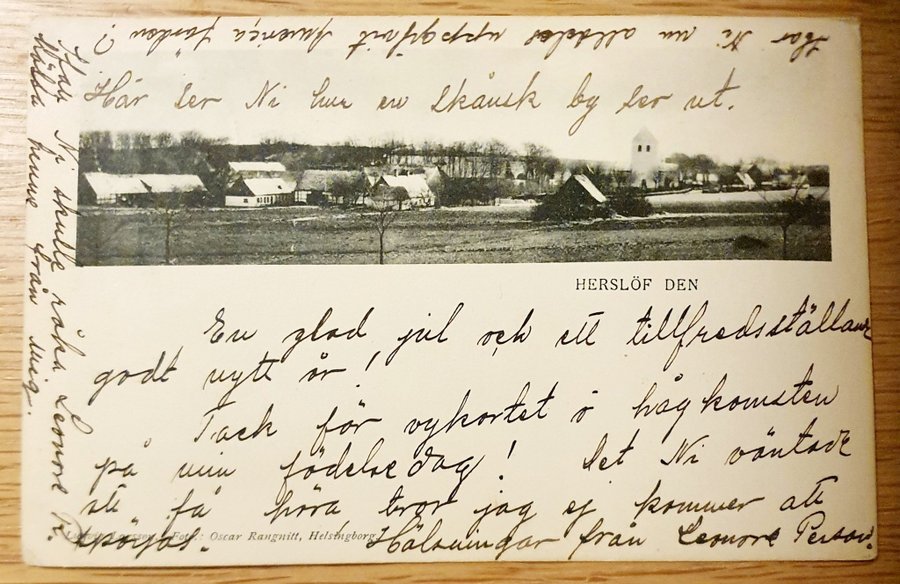 Har Ni nu alldeles uppgifvit Amerika färden?
Här ser Ni hur en skånsk by ser ut.
HERSLÖF DEN
En glad jul och ett tillfredsställande
godt nytt år!
Tack för vykortet o hågkomsten
på min födelsedag! Det Ni väntade
att få höra tror jag ej kommer att
spörjas. Hälsningar från Leonore Person.
Foto.: Oscar Rangnitt, Helsingborg.
Ifall Ni skulle råka Leonore P.
hälsa henne från mig.